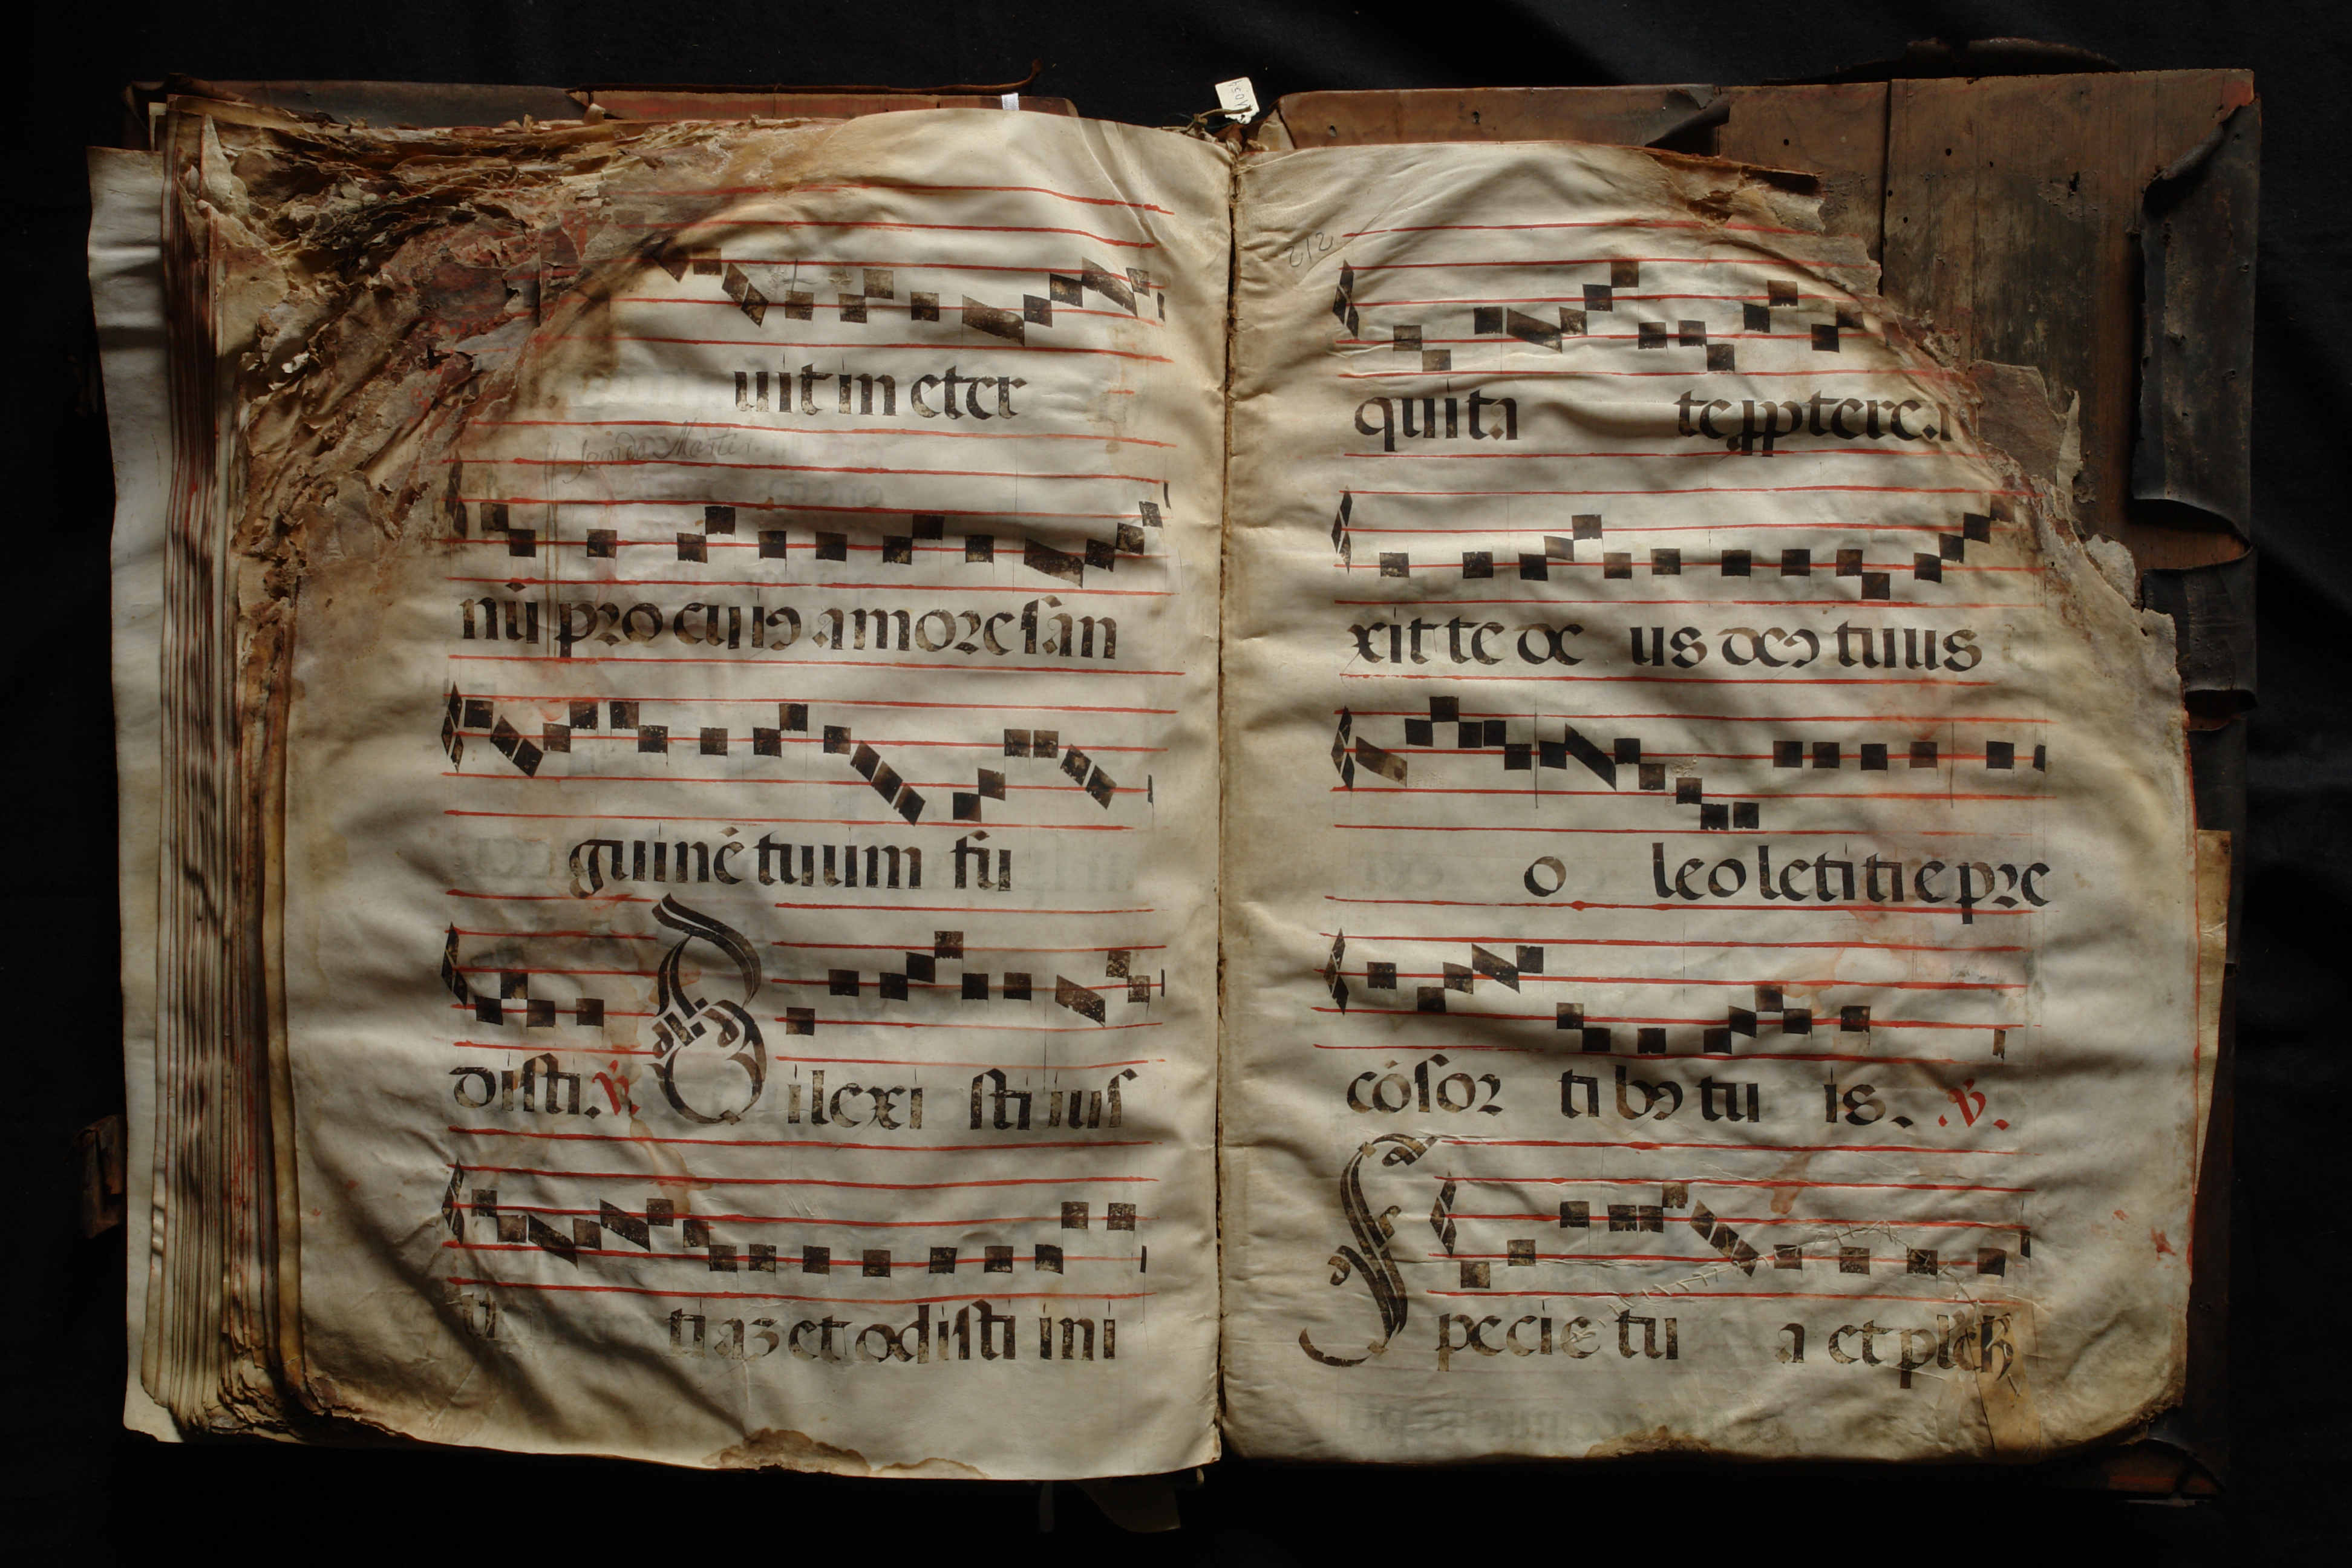 uit in eter
nū pro cuiꝰ amore san
guinē tuum fu
disti. ℣. Dilexi sti ius
ti tiaz et odisti ini
212
quita te ꝓpterea
xit te de us deꝰ tuus
o leo letitie pre
cōsor tibꝰ tu is. ℣.
Specie tu a et